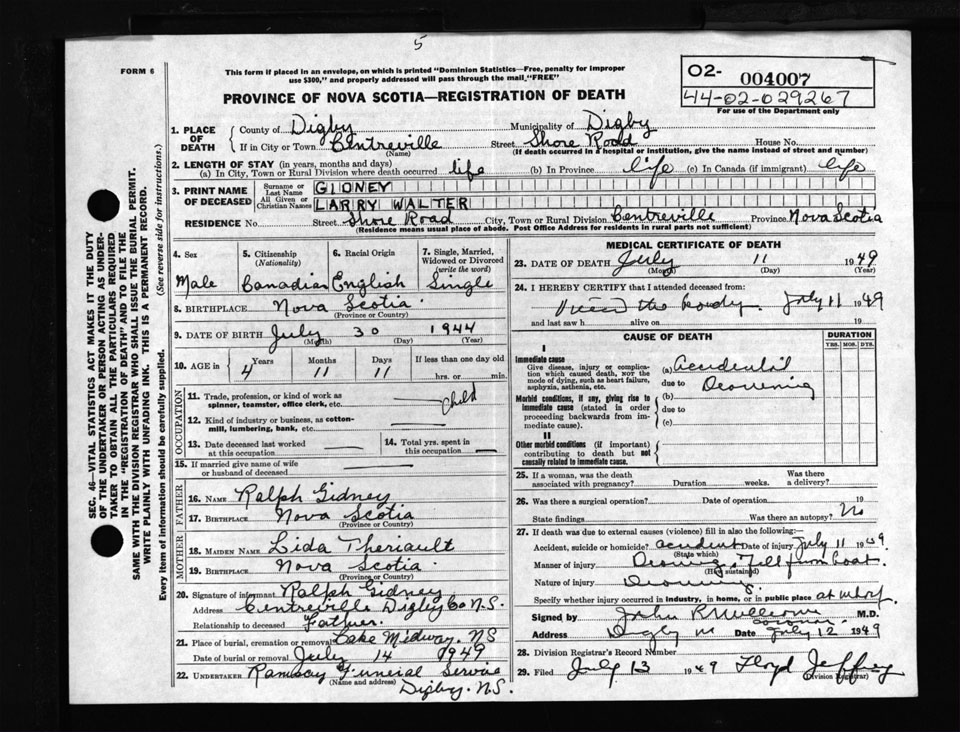 5
FORM 6
This form if placed in an envelope, on which is printed "Dominion Statistics—Free, penalty for improper
use $300," and properly addressed will pass through the mail, "FREE"
02- 004007
44-02-029267
For use of the Department only
PROVINCE OF NOVA SCOTIA—REGISTRATION OF DEATH
SEC. 46—VITAL STATISTICS ACT MAKES IT THE DUTY
OF THE UNDERTAKER OR PERSON ACTING AS UNDER-
TAKER TO OBTAIN ALL THE PARTICULARS REQUIRED
IN THE "REGISTRATION OF DEATH" AND TO FILE THE
SAME WITH THE DIVISION REGISTRAR WHO SHALL ISSUE THE BURIAL PERMIT.
WRITE PLAINLY WITH UNFADING INK. THIS IS A PERMANENT RECORD.
Every item of information should be carefully supplied. (See reverse side for instructions.)
1. PLACE OF DEATH County of Digby Municipality of Digby
If in City or Town Centreville Street Shore Road House No.
(Name) (If death occurred in a hospital or institution, give the name instead of street and number)
2. LENGTH OF STAY (in years, months and days)
(a) In City, Town or Rural Division where death occurred life (b) In Province life (c) In Canada (if immigrant) life
3. PRINT NAME OF DECEASED Surname or Last Name GIDNEY
All Given or Christian Names LARRY WALTER
RESIDENCE No. Street Shore Road City, Town or Rural Division Centreville Province Nova Scotia
(Residence means usual place of abode. Post Office Address for residents in rural parts not sufficient)
4. Sex 5. Citizenship (Nationality) 6. Racial Origin 7. Single, Married, Widowed or Divorced (write the word)
Male Canadian English Single
8. BIRTHPLACE Nova Scotia
(Province or Country)
9. DATE OF BIRTH July 30 1944
(Month) (Day) (Year)
10. AGE in Years Months Days If less than one day old
4 11 11 hrs. or min.
OCCUPATION
11. Trade, profession, or kind of work as spinner, teamster, office clerk, etc. Child
12. Kind of industry or business, as cotton-mill, lumbering, bank, etc.
13. Date deceased last worked at this occupation
14. Total yrs. spent in this occupation
15. If married give name of wife or husband of deceased
FATHER
16. NAME Ralph Gidney
17. BIRTHPLACE Nova Scotia
(Province or Country)
MOTHER
18. MAIDEN NAME Lida Theriault
19. BIRTHPLACE Nova Scotia
(Province or Country)
20. Signature of informant Ralph Gidney
Address Centreville Digby Co N.S.
Relationship to deceased Father
21. Place of burial, cremation or removal Lake Midway. NS
Date of burial or removal July 14 1949
22. UNDERTAKER Ramsay Funeral Service
(Name and address) Digby. N.S.
MEDICAL CERTIFICATE OF DEATH
23. DATE OF DEATH July 11 1949
(Month) (Day) (Year)
24. I HEREBY CERTIFY that I attended deceased from:
the body July 11 1949
and last saw h alive on 19
CAUSE OF DEATH DURATION
YRS. MOS. DYS.
I
Immediate cause
Give disease, injury or complication which caused death, NOT the mode of dying, such as heart failure, asphyxia, asthenia, etc.
(a) Accidental
due to Drowning
Morbid conditions, if any, giving rise to immediate cause (stated in order proceeding backwards from immediate cause).
(b)
due to
(c)
II
Other morbid conditions (if important) contributing to death but not causally related to immediate cause.
25. If a woman, was the death associated with pregnancy? Duration weeks. Was there a delivery?
26. Was there a surgical operation? Date of operation 19
State findings Was there an autopsy? No
27. If death was due to external causes (violence) fill in also the following:—
Accident, suicide or homicide? accident Date of injury July 11 1949
(State which)
Manner of injury Drowning. Fell from boat.
(How sustained)
Nature of injury Drowning
Specify whether injury occurred in industry, in home, or in public place at wharf
Signed by John R M.D.
Coroner
Address Digby NS Date July 12 1949
28. Division Registrar's Record Number
29. Filed July 13 1949 Floyd Jeffrey
(Division Registrar)